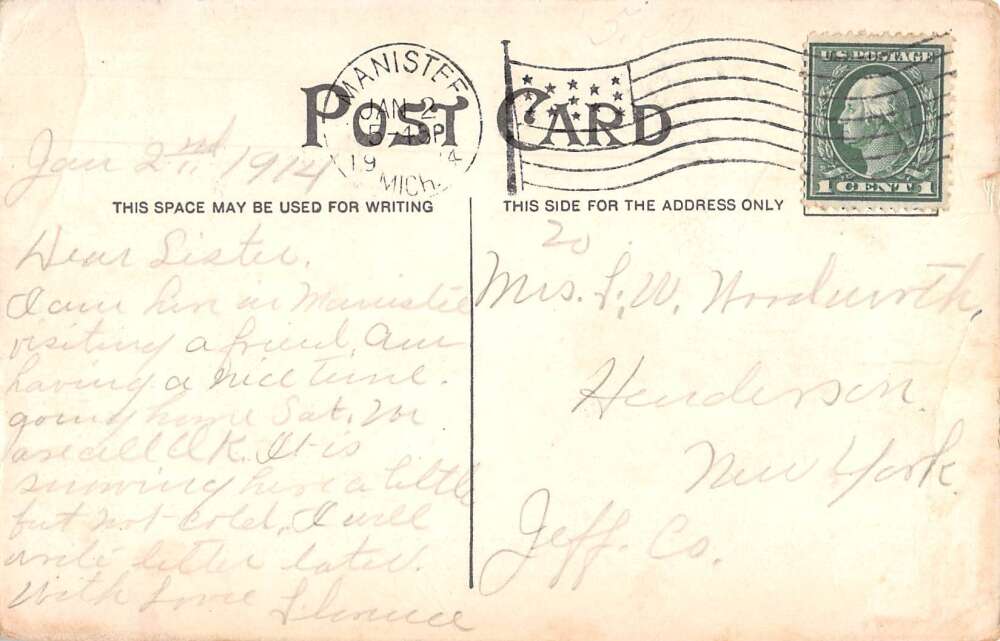 POST CARD
MANISTEE
JAN 2
5-43P
19 14
MICH.
U.S. POSTAGE
1 CENT 1
Jan 2nd 1914
THIS SPACE MAY BE USED FOR WRITING
THIS SIDE FOR THE ADDRESS ONLY
Dear Sister.
I am here in Manistee
visiting a friend. Am
having a nice time.
going home Sat. We
are all O.K. It is
snowing here a little
but not cold. I will
write letter later.
With Love Florence
20
Mrs. F. W. Wordworth,
Henderson.
New York.
Jeff. Co.